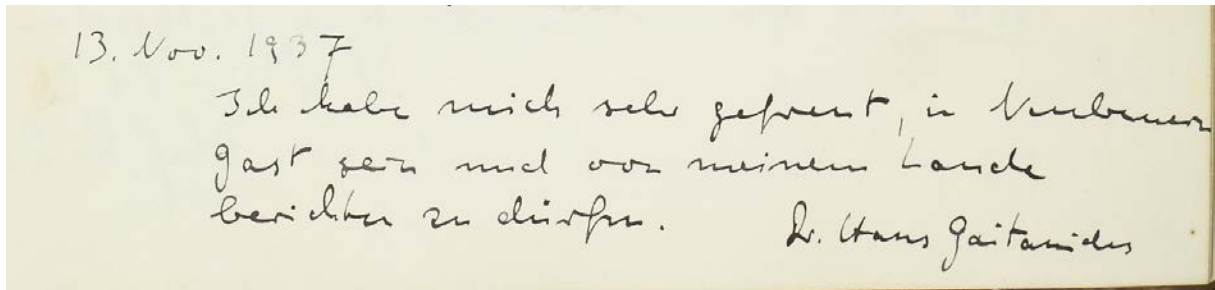 13. Nov. 1937
Ich habe mich sehr gefreut, in Neubeuern
Gast sein und von meinem Lande
berichten zu dürfen.
Dr. Hans Gaitanides